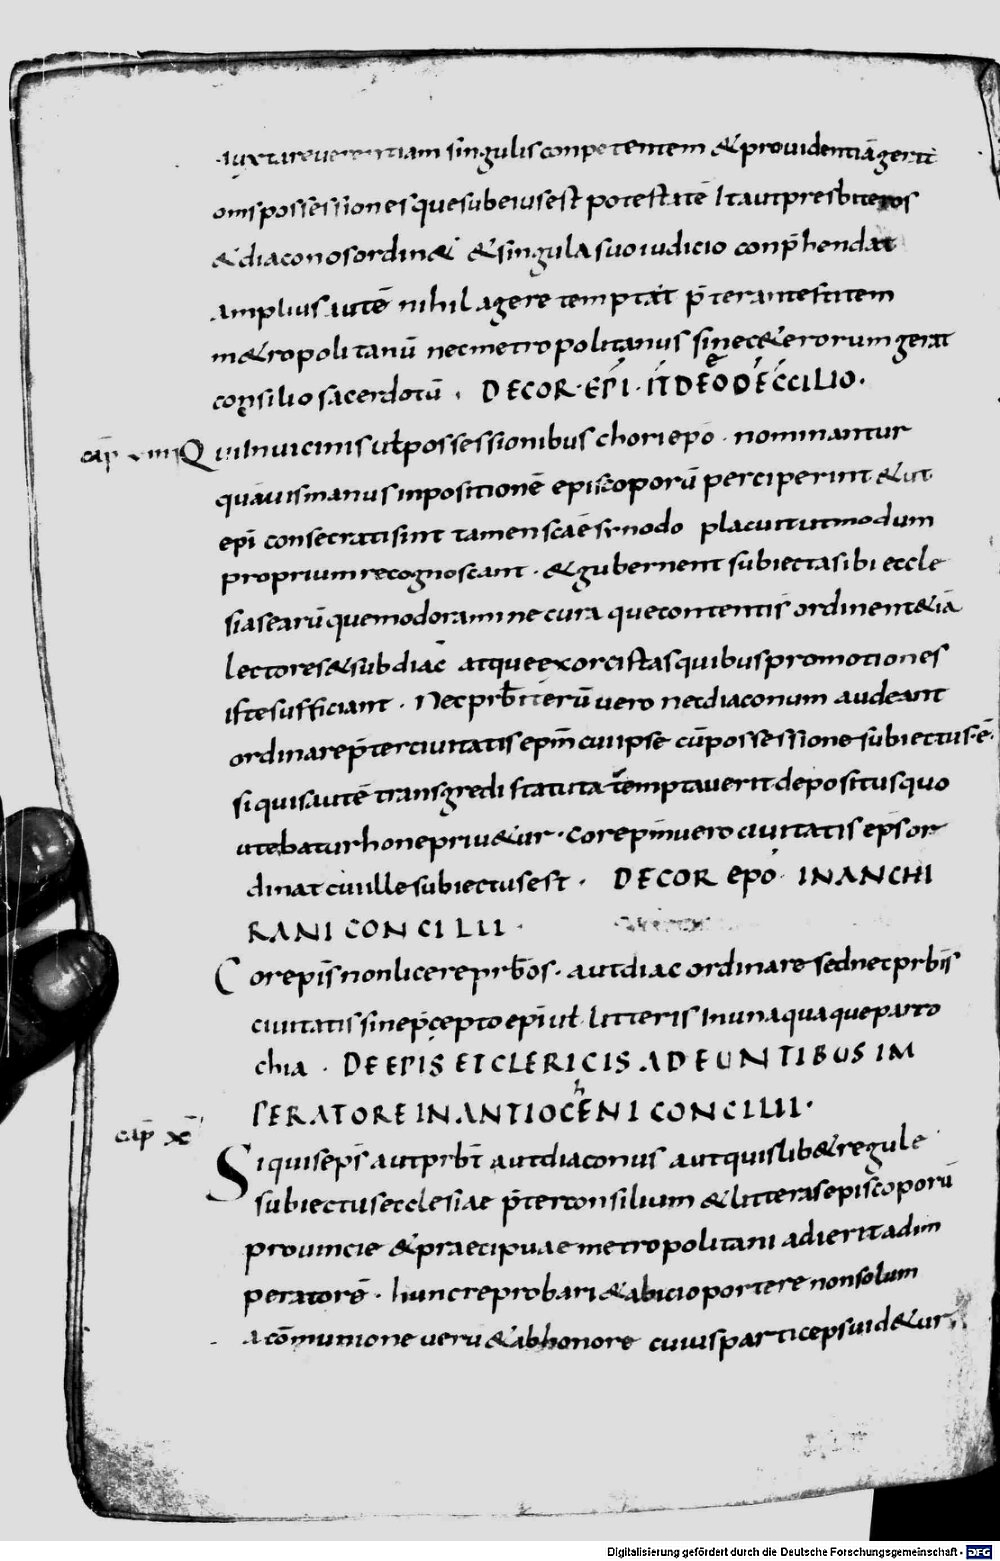 iuxta reverentiam singulis conpetentem & providentiā gerat
om̄s possessiones que sub eius est potestatē Ita ut presbiteros
& diaconos ordin& & singula suo iudicio conp̄hendat
amplius autē nihil agere temptat p̄ter antestitem
m&ropolitanū nec metropolitanus sine c&erorum gerat
consilio sacerdotū . DE COR· EPI· IT DE EODĒ CCILIO.
cap̄ viiii Qui In vicinis uł possessionibus choriepō · nominantur
quāuis manus inpositionē episcoporū perciperint & ut
epī consecrati sint tamen scāe synodo placuit ut modum
proprium recognoscant · & gubernent subiectas ibi eccle
sias earū quemoderamine cura que contentis ordinent &iā
lectores & subdiac̄ atque exorcistas quibus promotiones
iste sufficiant · Nec prb̄iterū vero nec diaconum audeant
ordinare p̄ter civitatis epm̄ cui ipse cū possessione subiectus ē·
si quis autē transgredi statuta temptaverit depositus quo
utebatur hone priv&ur · corepm̄ vero civitatis ep̄s or
dinat cui ille subiectus est · DE COR epō · IN ANCHI
RANI CONCILII ·
Corepīs non licere prb̄os · aut diac ordinare sed nec prb̄is
civitatis sine p̄cepto epī uł litteris In unaquaque parro
chia · DE EPIS ET CLERICIS ADEUNTIBUS IM
PERATORE IN ANTIOCHENI CONCILII·
cap̄ x Si quis ep̄s aut prb̄t aut diaconus aut quislib& regule
subiectus ecclesiae p̄ter consilium & litteras episcoporū
provincie & praecipuae metropolitani adierit ad im
peratorē · hunc reprobari & abici oportere non solum
a cōmunione verū & ab honore cuius particeps vid&ur
Digitalisierung gefördert durch die Deutsche Forschungsgemeinschaft - DFG